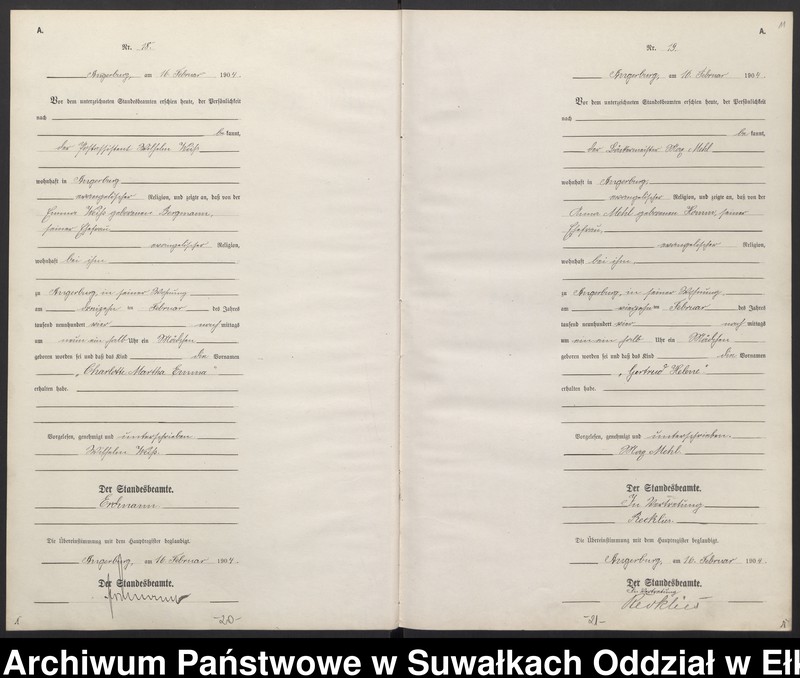 A.
Nr. 18.
Angerburg, am 16. Februar 1904.
Vor dem unterzeichneten Standesbeamten erschien heute, der Persönlichkeit
nach
be kannt,
der Postassistent Wilhelm Weiß
wohnhaft in Angerburg
evangelischer Religion, und zeigte an, daß von der
Emma Weiß geborenen Bergmann,
seiner Ehefrau
evangelischer Religion,
wohnhaft bei ihm
zu Angerburg, in seiner Wohnung
am dreizehnten Februar des Jahres
tausend neunhundert vier nachmittags
um neun ein halb Uhr ein Mädchen
geboren worden sei und daß das Kind die Vornamen
„Charlotte Martha Emma"
erhalten habe.
Vorgelesen, genehmigt und unterschrieben
Wilhelm Weiß.
Der Standesbeamte.
Erdmann.
Die Übereinstimmung mit dem Hauptregister beglaubigt.
Angerburg, am 16. Februar 1904.
Der Standesbeamte.
Erdmann
-20-
A.
Nr. 19.
Angerburg, am 16. Februar 1904.
Vor dem unterzeichneten Standesbeamten erschien heute, der Persönlichkeit
nach
be kannt,
der Bäckermeister Max Mehl
wohnhaft in Angerburg,
evangelischer Religion, und zeigte an, daß von der
Anna Mehl geborenen seiner
Ehefrau,
evangelischer Religion,
wohnhaft bei ihm
zu Angerburg, in seiner Wohnung
am vierzehnten Februar des Jahres
tausend neunhundert vier nachmittags
um ein ein halb Uhr ein Mädchen
geboren worden sei und daß das Kind die Vornamen
„Gertrud Helene"
erhalten habe.
Vorgelesen, genehmigt und unterschrieben.
Max Mehl.
Der Standesbeamte.
In Vertretung
Recklies.
Die Übereinstimmung mit dem Hauptregister beglaubigt.
Angerburg, am 16. Februar 1904.
Der Standesbeamte.
In Vertretung
Recklies
-21-
Archiwum Państwowe w Suwałkach Oddział w Ełk